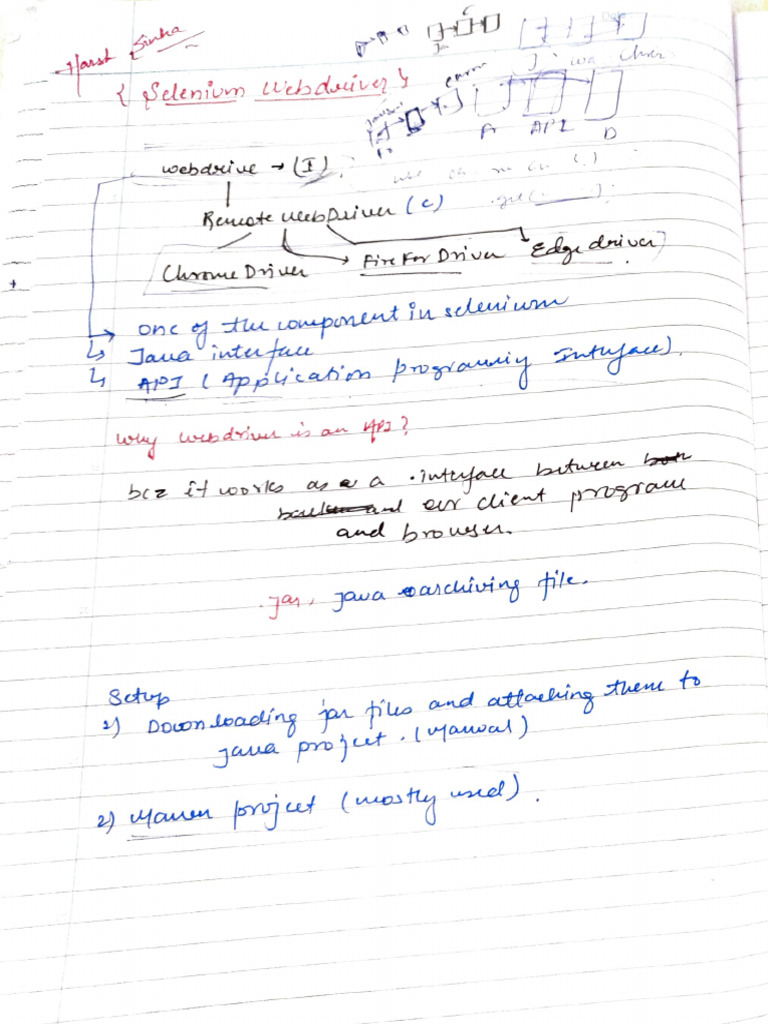 Harsh Sinha
{ Selenium Webdriver }
A API D
webdrive → (I)
Remote WebDriver (C)
Chrome Driver FireFox Driver Edge driver
one of the component in selenium
Java interface
API (Application programming Interface).
Why webdriver is an API?
bcz it works as a interface between
and our client program
and browser.
.jar, java archiving file.
Setup
1) Downloading jar files and attaching them to
java project. (Manual)
2) Maven project (mostly used).